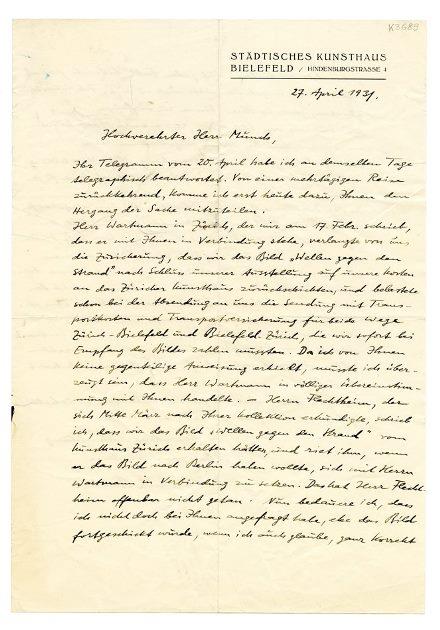 K3689
STÄDTISCHES KUNSTHAUS
BIELEFELD / HINDENBURGSTRASSE 4
27. April 1931.
Hochverehrter Herr Munch,
Ihr Telegramm vom 20. April habe ich an demselben Tage
telegraphisch beantwortet. Von einer mehrtägigen Reise
zurückkehrend, komme ich erst heute dazu, Ihnen den
Hergang der Sache mitzuteilen.
Herr Wartmann in Zürich, der mir am 17 Febr. schrieb,
dass er mit Ihnen in Verbindung stehe, verlangte von uns
die Zusicherung, dass wir das Bild „Wellen gegen den
Strand" nach Schluss unserer Ausstellung auf unsere Kosten
an das Züricher Kunsthaus zurückschickten, und belastete
schon bei der Absendung an uns die Sendung mit Trans-
portkosten und Transportversicherung für beide Wege
Zürich-Bielefeld und Bielefeld-Zürich, die wir sofort bei
Empfang des Bildes zahlen mussten. Da ich von Ihnen
keine gegenteilige Anweisung erhielt, musste ich über-
zeugt sein, dass Herr Wartmann in völliger Übereinstim-
mung mit Ihnen handelte. – Herrn Flechtheim, der
sich Mitte März nach Ihrer Kollektion erkundigte, schrieb
ich, dass wir das Bild „Wellen gegen den Strand" vom
Kunsthaus Zürich erhalten hätten, und riet ihm, wenn
er das Bild nach Berlin haben wollte, sich mit Herrn
Wartmann in Verbindung zu setzen. Das hat Herr Flecht-
heim offenbar nicht getan. Nun bedaure ich, dass
ich nicht doch bei Ihnen angefragt habe, ehe das Bild
fortgeschickt wurde, wenn ich auch glaube, ganz korrekt